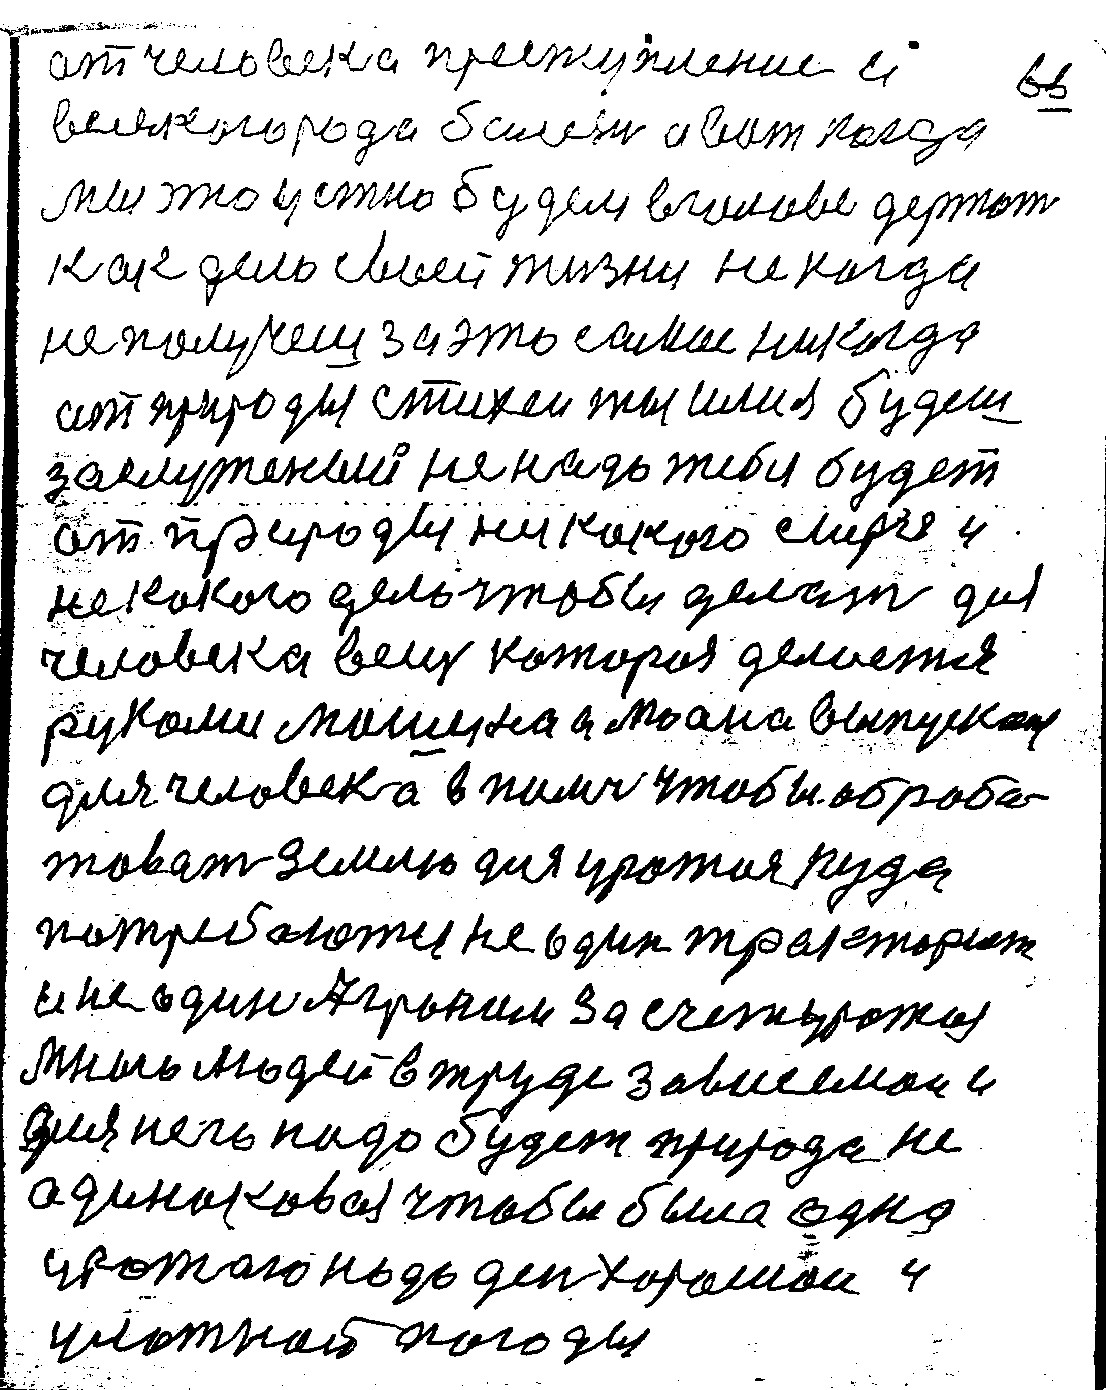 от человека преступление и 66
всякого рода болезни а вот когда
мы это устно будем в голове держат
как дело своей жизни некогда
не получеш за это самое никогда
от природы стихеи ты или я будеш
заслуженый не надо тебя будет
от природы ни какого смерче и
некокого дело чтобы делат для
человека вещ которая делается
рукоми машына а то она выпускаи
для человека в поли чтобы обрабо
товат землю для урожая куда
потребуютсы не один тракторист
и не один Агроном за счет урожая
много людей в труде зависемои и
для него надо будет природа не
одинаковая чтобы была одна
урожаю надо ден хорошои и
уютной погоды